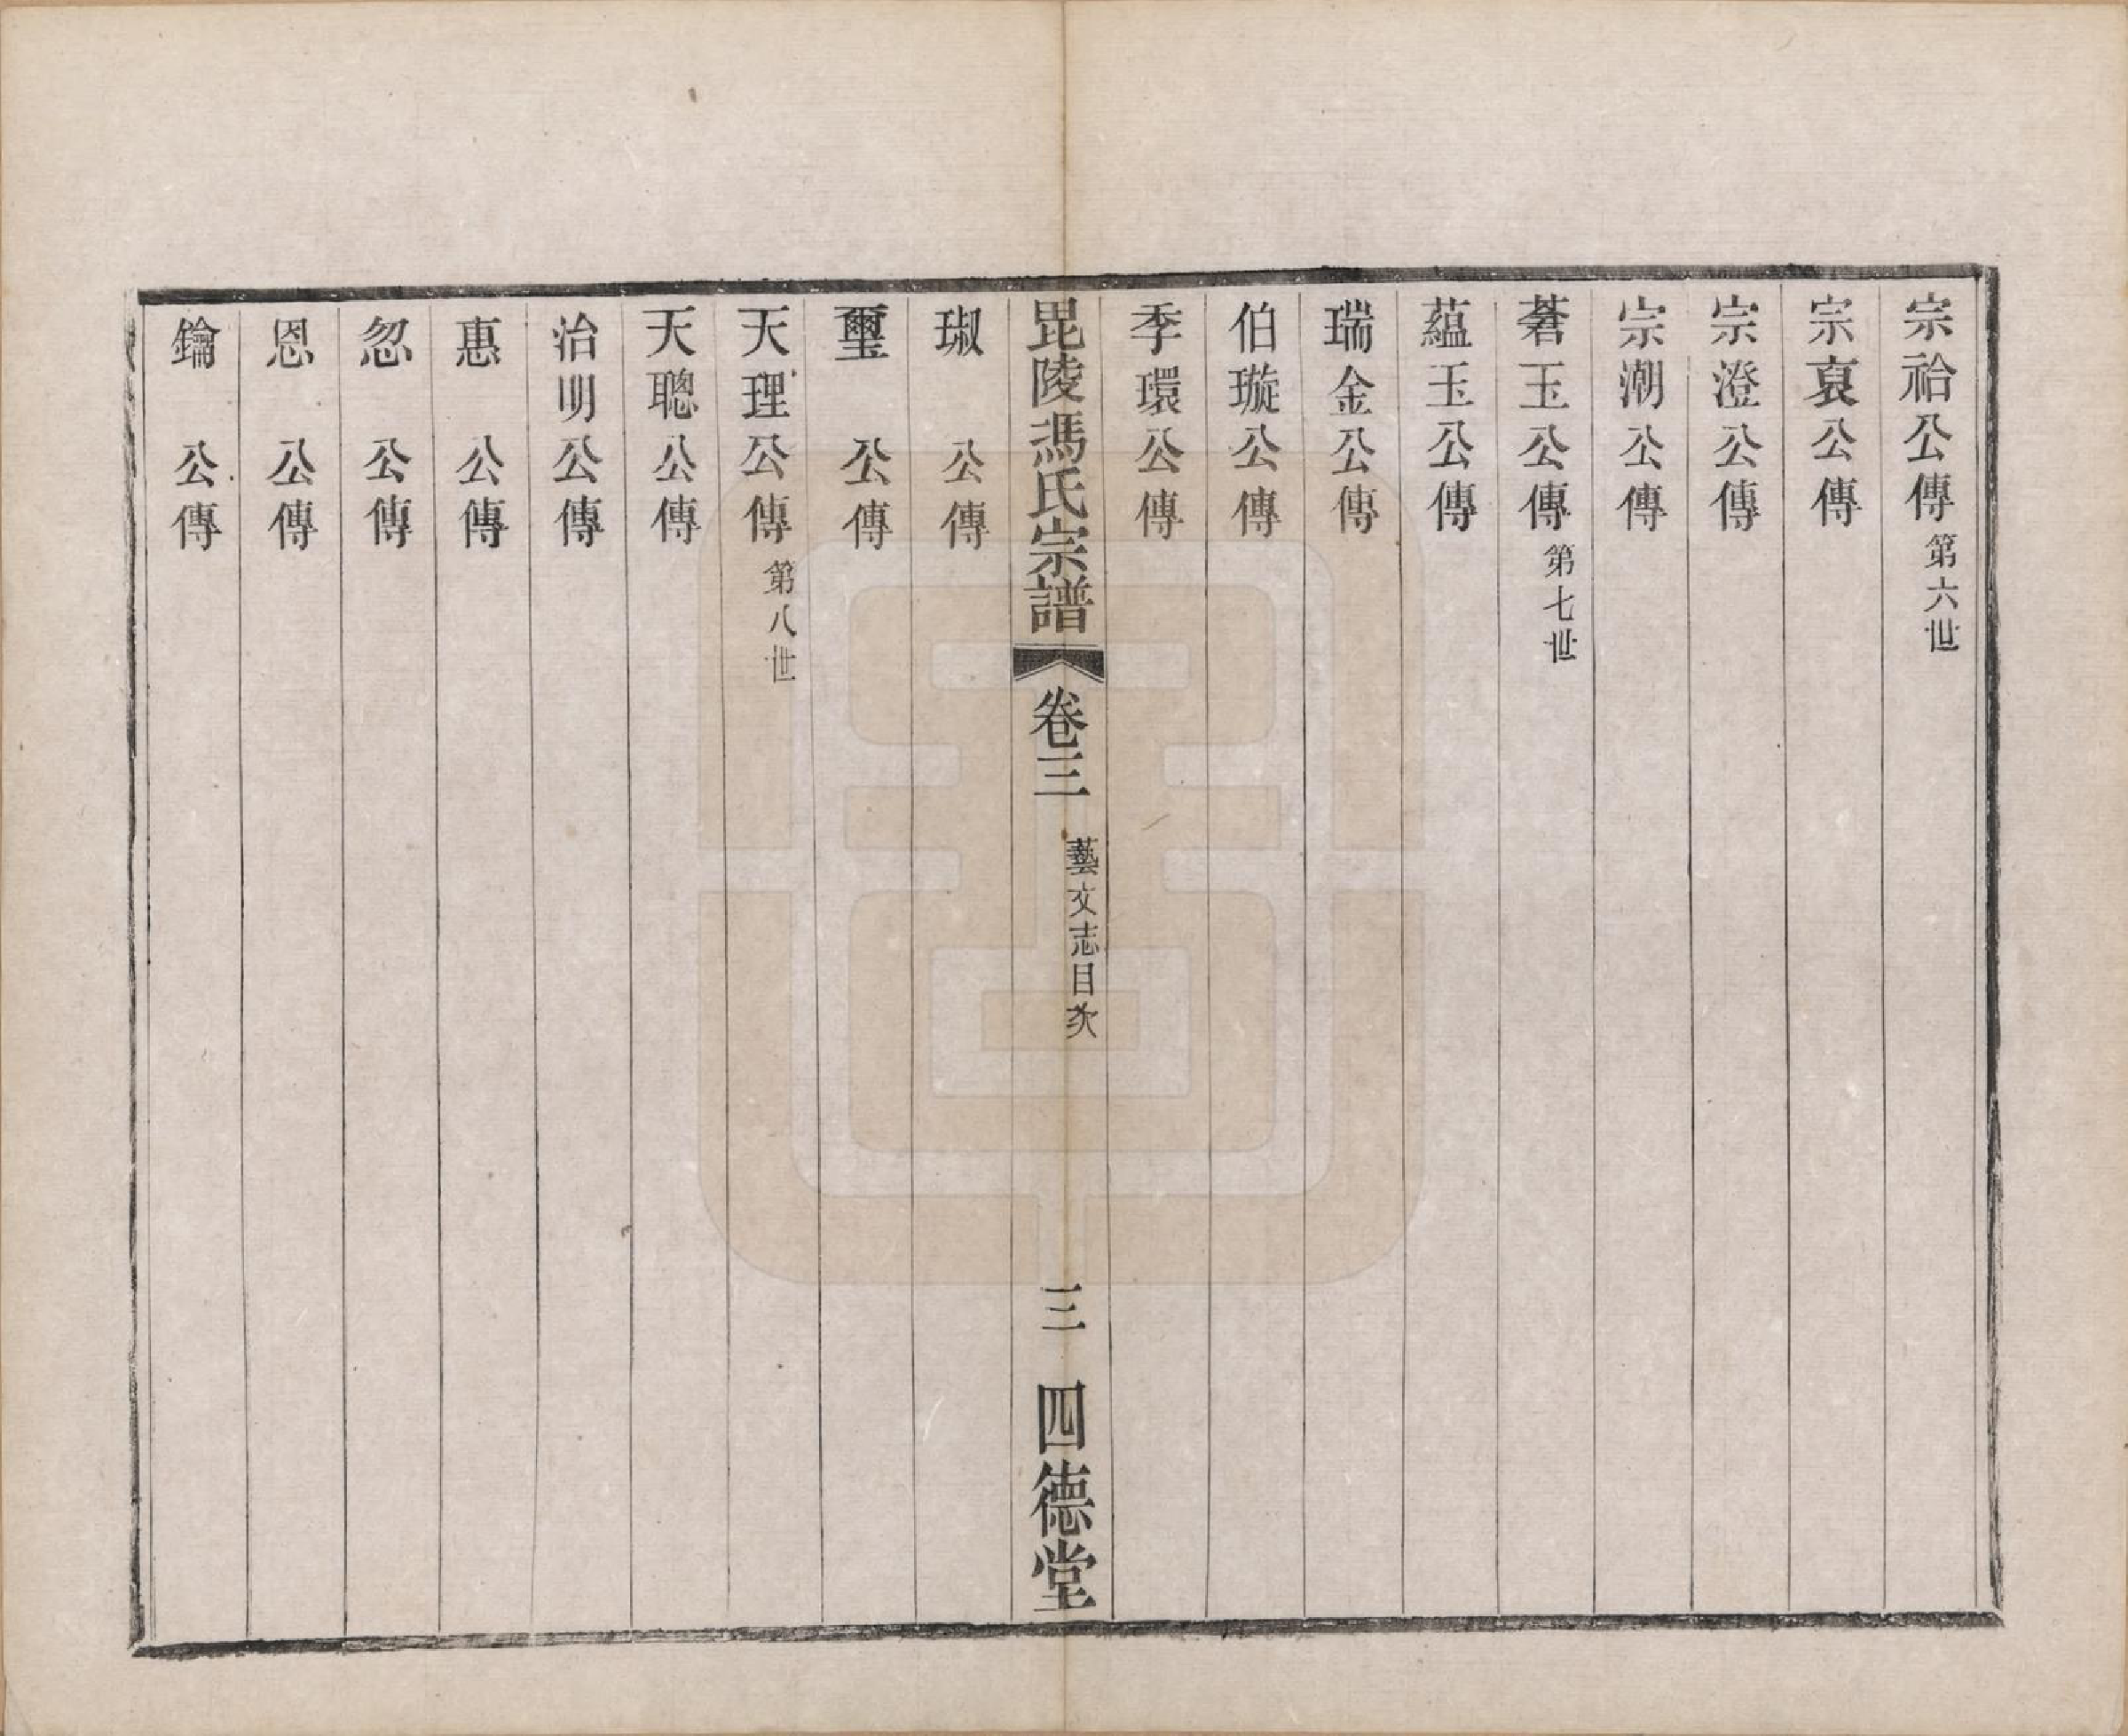 宗祫公傳第六世
宗裒公傳
宗澄公傳
宗潮公傳
蒼玉公傳第七世
蘊玉公傳
瑞金公傳
伯璇公傳
季環公傳
毘陵馮氏宗譜 卷三 藝文志目次 三 四德堂
琡 公傳
璽 公傳
天理公傳第八世
天聰公傳
治明公傳
惠 公傳
忽 公傳
恩 公傳
鑰 公傳